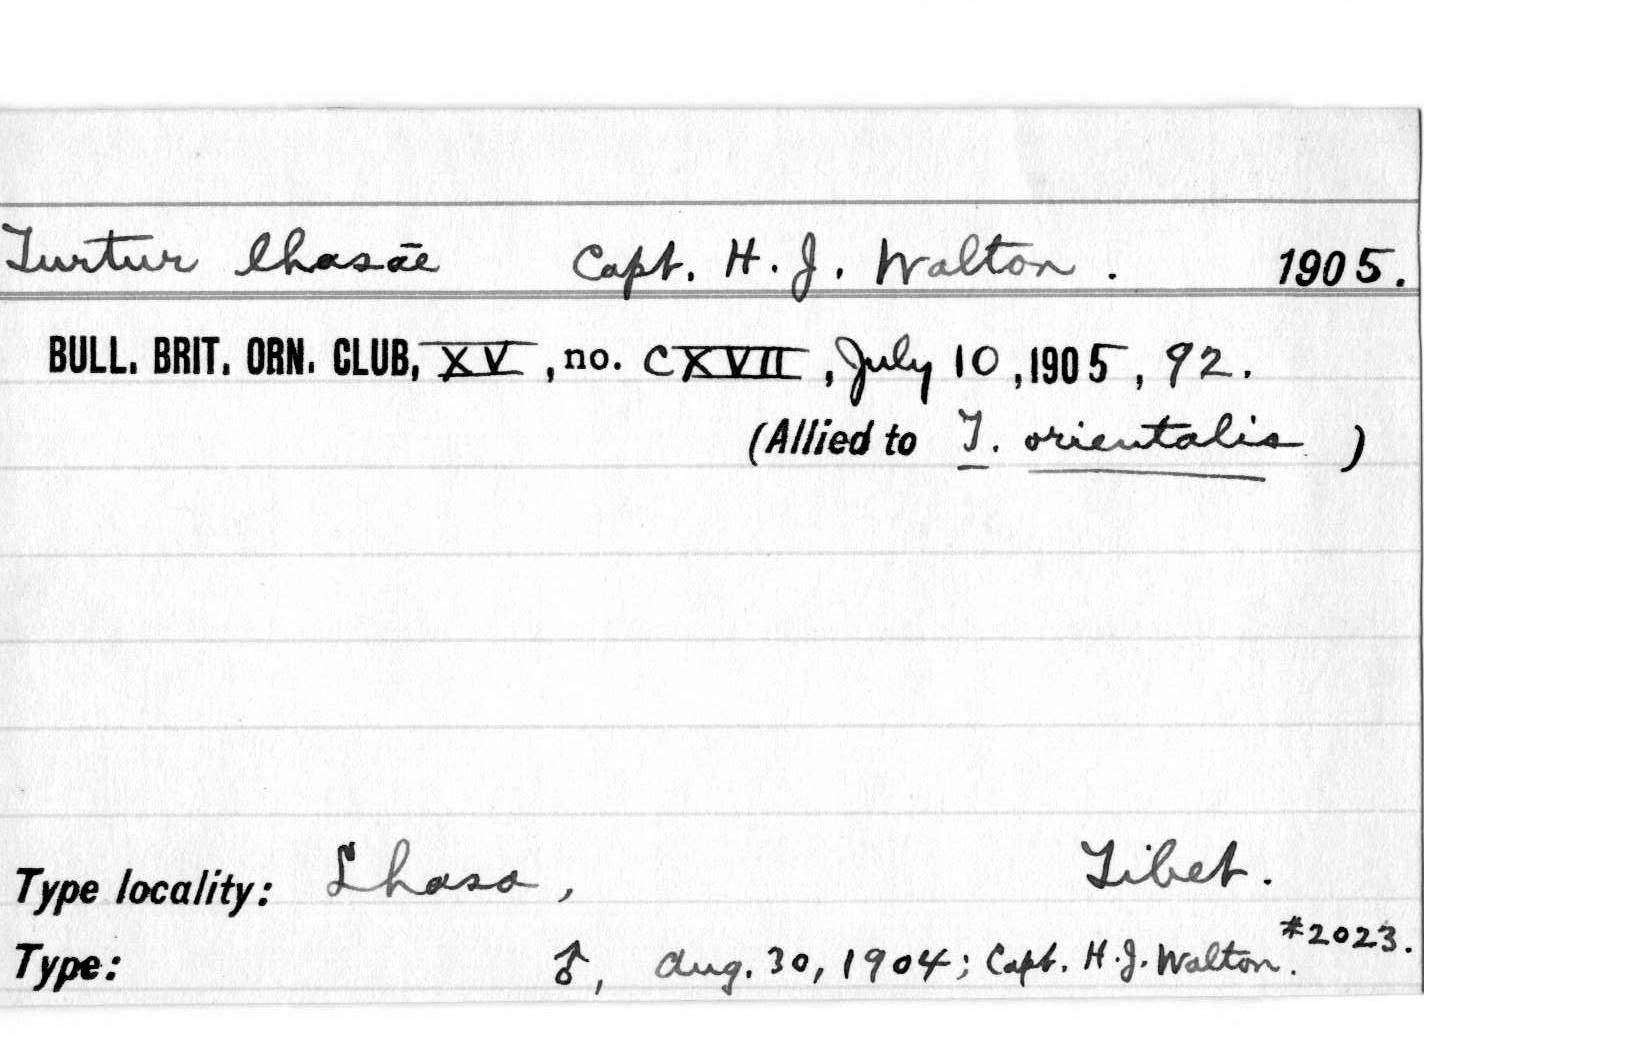 Turtur lhasāe Capt. H. J. Walton. 1905.
BULL. BRIT. ORN. CLUB, XV, no. CXVII, July 10, 1905, 92.
(Allied to T. orientalis)
Type locality: Lhasa, Tibet.
Type: ♂, Aug. 30, 1904; Capt. H. J. Walton. #2023.